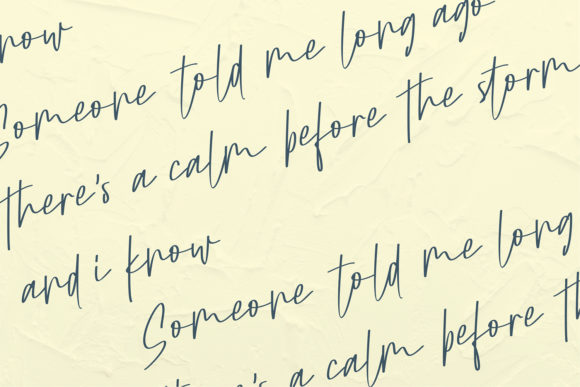 know
Someone told me long ago
there's a calm before the storm
and i know
Someone told me long
there's a calm before th